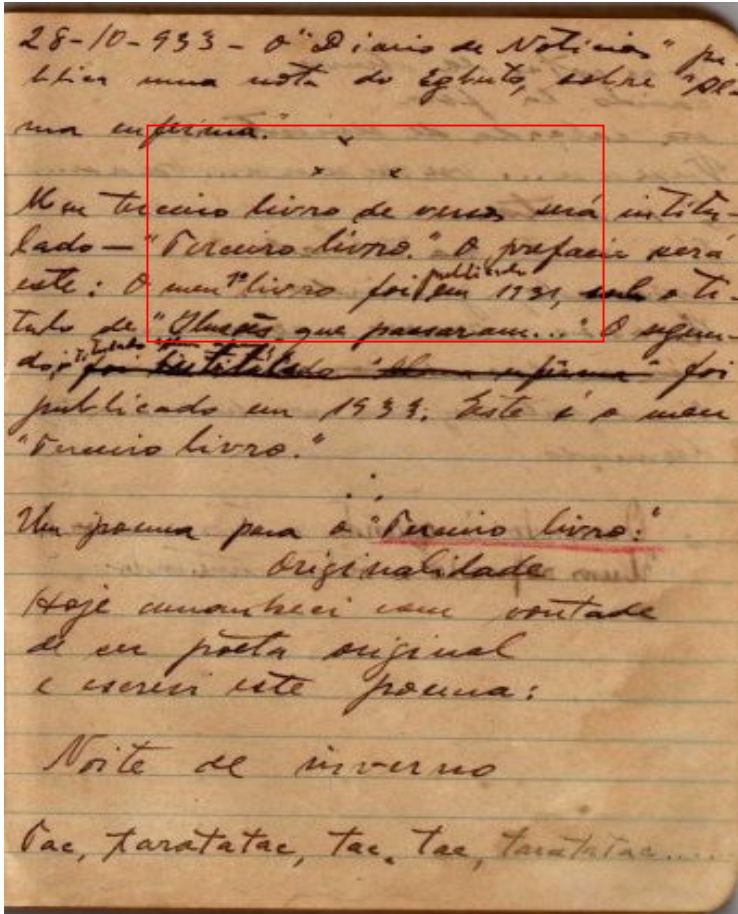 28-10-933 - O "Diario de Noticias" pu-
blica uma nota do Egberto, sobre "Al-
ma enferma."
x
x x
Meu terceiro livro de versos será intitu-
lado — "Terceiro livro." O prefacio será
este: O meu 1º livro foi publicado em 1931, sob o ti-
tulo de "Ilusões que passaram..." O segun-
do, foi intitulado "Alma enferma" foi
publicado em 1933. Este é o meu
"Terceiro livro."
Um poema para o "Terceiro livro:"
Originalidade
Hoje amanheci com vontade
de ser poeta original
e escrevi este poema:
Noite de inverno
Tac, taratatac, tac, tac, taratatac....